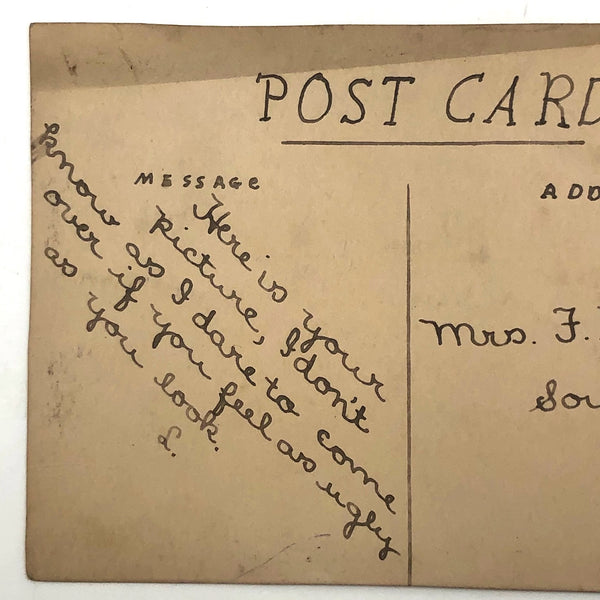 POST CARD
MESSAGE
Here is your
picture, I don't
know as I dare to come
over if you feel as ugly
as you look.
L.
ADD
Mrs. F.
Sou